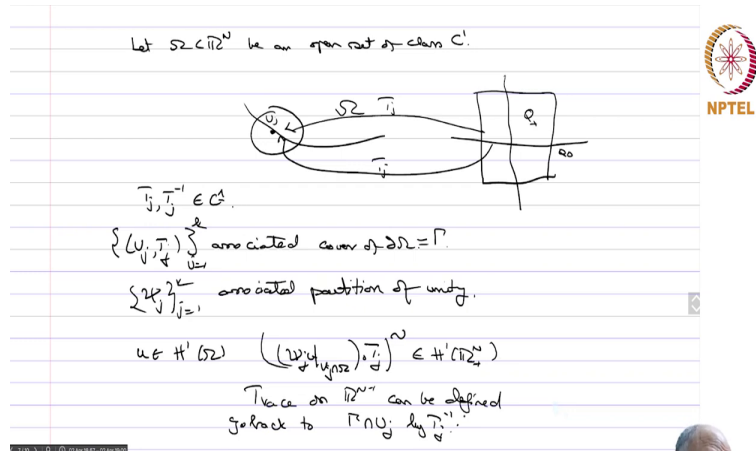 Let Ω⊂ℝᴺ be an open set of class C¹.
Ω T_j
U_j
Q₊
Q₀
T_j
NPTEL
T_j, T_j⁻¹ ∈ C¹.
{(U_j, T_j)}ᵏ_{j=1} associated cover of ∂Ω = Γ.
{ψ_j}ᵏ_{j=1} associated partition of unity.
u ∈ H¹(Ω) ((ψ_j u|_{U_j∩Ω}) ∘ T_j)~ ∈ H¹(ℝᴺ₊)
Trace on ℝᴺ⁻¹ can be defined
go back to Γ∩U_j by T_j⁻¹